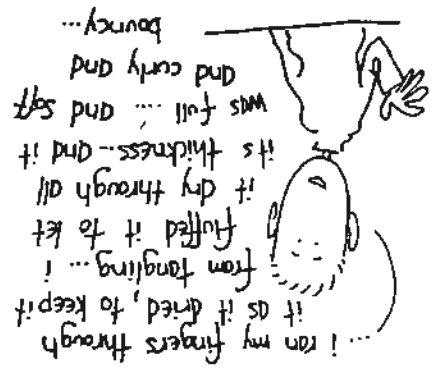 ... i ran my fingers through
it as it dried, to keep it
from tangling... i
fluffed it to let
it dry through all
its thickness... and it
was full .... and soft
and curly and
bouncy...